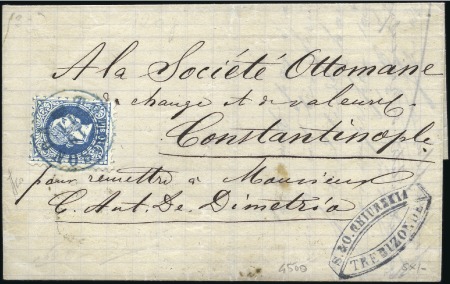 A la Société Ottomane
de change et de valeurs
Constantinople
pour remettre à Monsieur
C. Ant. De Dimetrio
TREBIZONDE
4500